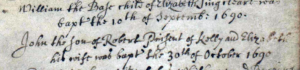 William the Base child of Elizabeth was
bapt the 10th of Septembr 1690.
John the Son of Robert of Kelly and Elizabeth
his wife was bapt the 30th of October 1690